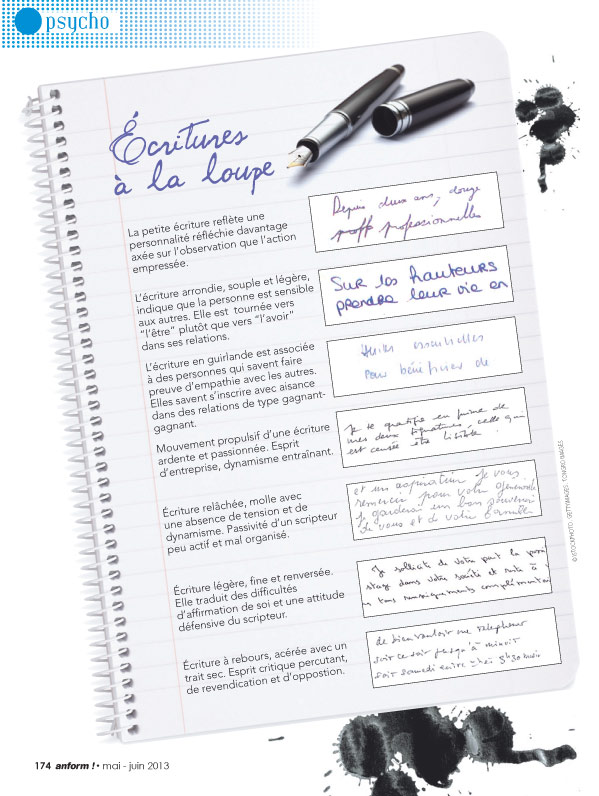 psycho
Écritures
à la loupe
La petite écriture reflète une
personnalité réfléchie davantage
axée sur l'observation que l'action
empressée.
Depuis deux ans, douze
professionnelles
L'écriture arrondie, souple et légère,
indique que la personne est sensible
aux autres. Elle est tournée vers
"l'être" plutôt que vers "l'avoir"
dans ses relations.
SUR les hauteurs
prendre leur vie en
L'écriture en guirlande est associée
à des personnes qui savent faire
preuve d'empathie avec les autres.
Elles savent s'inscrire avec aisance
dans des relations de type gagnant-
gagnant.
Huiles essentielles
Pour bénéficier de
Mouvement propulsif d'une écriture
ardente et passionnée. Esprit
d'entreprise, dynamisme entraînant.
Je te gratifie en prime de
mes deux signatures, celle qui
est censée être lisible.
Écriture relâchée, molle avec
une absence de tension et de
dynamisme. Passivité d'un scripteur
peu actif et mal organisé.
et un aspirateur je vous
remercie pour votre générosité
je garderai un bon souvenir
de vous et de votre famille
Écriture légère, fine et renversée.
Elle traduit des difficultés
d'affirmation de soi et une attitude
défensive du scripteur.
Je sollicite de votre part la
dans votre société et reste à
tous renseignements complémentaires
Écriture à rebours, acérée avec un
trait sec. Esprit critique percutant,
de revendication et d'oppostion.
de bien vouloir me telephoner
soir ce soir jusqu'à minuit
soit samedi entre 9h30
© ISTOCKPHOTO, GETTYIMAGES, TONGRO IMAGES
174 anform ! • mai - juin 2013